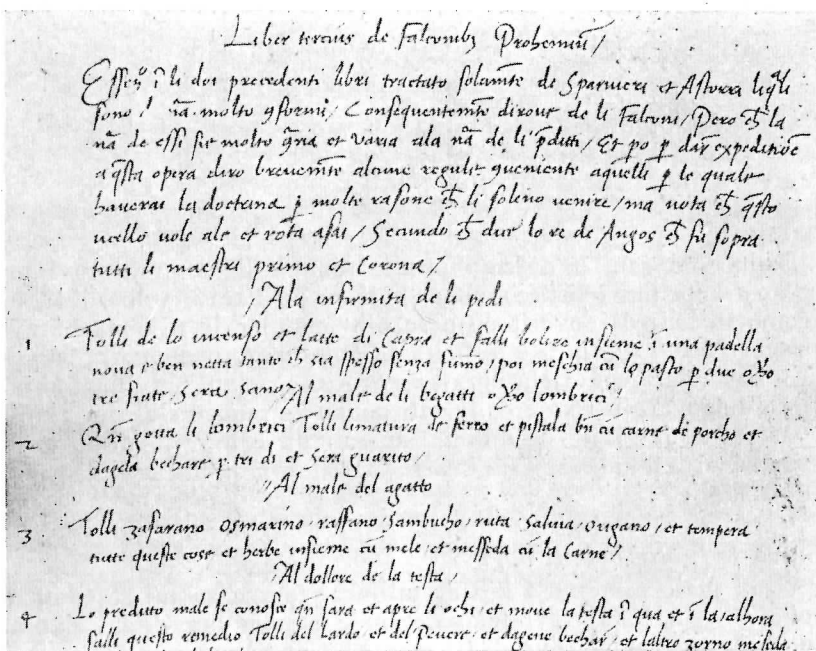 Liber tercius de Falconibꝫ Prohemiũ /
Essẽdo ĩ li doi precedenti libri tractato solamẽte de Sparuieri et Astorri li q̃li
sono ĩ nã molto ꝯformi / Consequentemẽte dirove de li Falconi / Pero ch̃ la
nã de essi sie molto ꝯtria et varia ala nã de li p̃ditti / Et po p dar expeditiõe
a q̃sta opera diro brevemẽte alcune regule ꝯueniente aquelli p le quale
haverai la doctrina p molte rasone ch̃ li soleno venire / ma nota ch̃ q̃sto
ucello vole ale et rota asai / Secundo ch̃ dice lo re de Angos ch̃ fu sopra
tutti li maestri primo et Corona /
/ Ala infirmita de li pedi
1 Tolli de lo incenso et latte di Capra et falli bolire insieme ĩ una padella
nova e ben netta tanto ch̃ sia spesso senza fumo / poi meschia cũ lo pasto p due
tre fiate sera sano / Al male de li begatti lombrici /
2 Qñ gotta li lombrici Tolli limatura de ferro et pistala bñ cũ carne de porcho et
dagela bechare p tri di et sera guarito /
/ Al male del agatto
3 Tolli zafarano osmarino raffano sambucho, ruta salvia origano / et tempera
tutte queste cose et herbe insieme cũ mele / et messeda cũ la Carne /
/ Al dollore de la testa /
4 Lo preditto male se conosce qñ sara et apre li ochi / et move la testa ĩ qua et ĩ la / alhora
falli questo remedio Tolli del Lardo et del Pevere et dagene bechar / et laltro zorno meseda